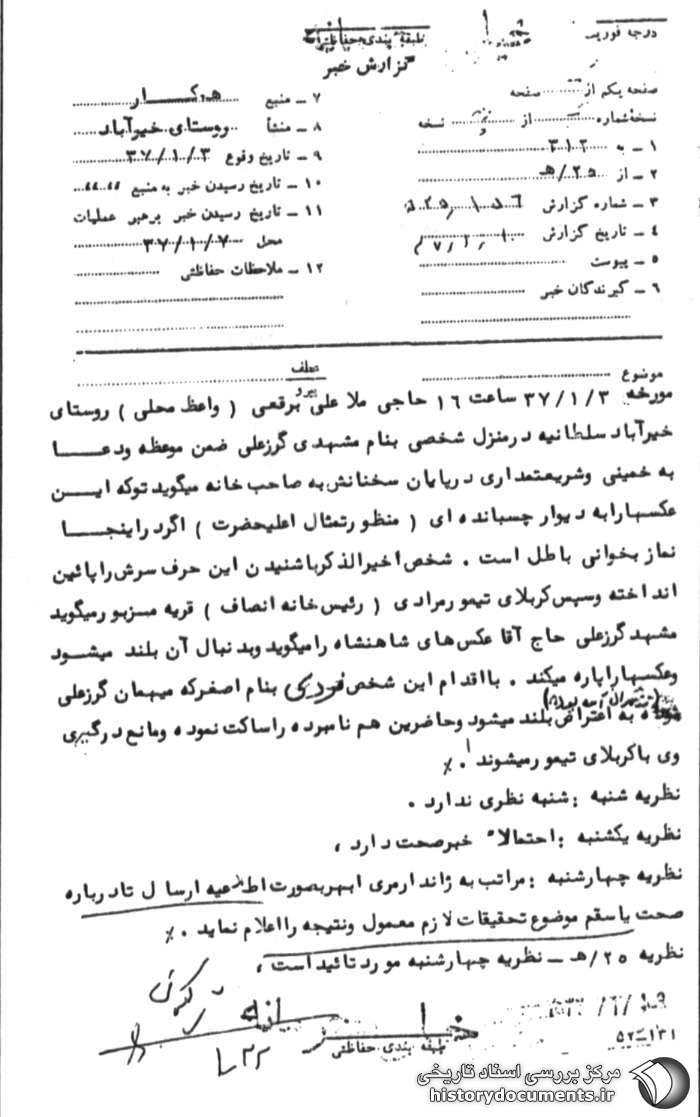 درجه فوریت
طبقه بندی حفاظتی
گزارش خبر
صفحه یکم از صفحه
نسخهٔ شماره از نسخه
۱ ـ به ۳۱۲
۲ ـ از ۲۵/هـ
۳ ـ شماره گزارش
۴ ـ تاریخ گزارش
۵ ـ پیوست
۶ ـ گیرندگان خبر
۷ ـ منبع همکار
۸ ـ منشأ روستای خیرآباد
۹ ـ تاریخ وقوع ۳۷/۱/۳
۱۰ ـ تاریخ رسیدن خبر به منبع
۱۱ ـ تاریخ رسیدن خبر برهبر عملیات
محل ۳۷/۱/۷
۱۲ ـ ملاحظات حفاظتی
موضوع
عطف
پیرو
مورخه ۳۷/۱/۳ ساعت ۱۶ حاجی ملا علی برقعی ( واعظ محلی ) روستای
خیرآباد سلطانیه در منزل شخصی بنام مشهدی گرزعلی ضمن موعظه ودعا
به خمینی وشریعتمداری درپایان سخنانش به صاحب خانه میگوید توکه این
عکسهارابه دیوار چسبانده ای ( منظورتمثال اعلیحضرت ) اگر در اینجا
نماز بخوانی باطل است . شخص اخیرالذکرباشنیدن این حرف سرش راپائین
انداخته وسپس کربلای تیمورمرادی ( رئیس خانه انصاف ) قریه مزبور میگوید
مشهد گرزعلی حاج آقا عکس های شاهنشاه رامیگوید وبدنبال آن بلند میشود
وعکسهاراپاره میکند . بااقدام این شخص فردی بنام اصغرکه میهمان گرزعلی
بوده به اعتراض بلند میشود وحاضرین هم نامبرده راساکت نموده ومانع درگیری
وی باکربلای تیمورمیشوند . ٪
نظریه شنبه : شنبه نظری ندارد .
نظریه یکشنبه : احتمالا" خبرصحت دارد ،
نظریه چهارشنبه : مراتب به ژاندارمری ابهربصورت اطلاعیه ارسال تادرباره
صحت یاسقم موضوع تحقیقات لازم معمول ونتیجه رااعلام نماید . ٪
نظریه ۲۵/هـ ـ نظریه چهارشنبه مورد تائید است ،
طبقه بندی حفاظتی
۵۲ـ۱۳۱
مرکز بررسی اسناد تاریخی
historydocuments.ir